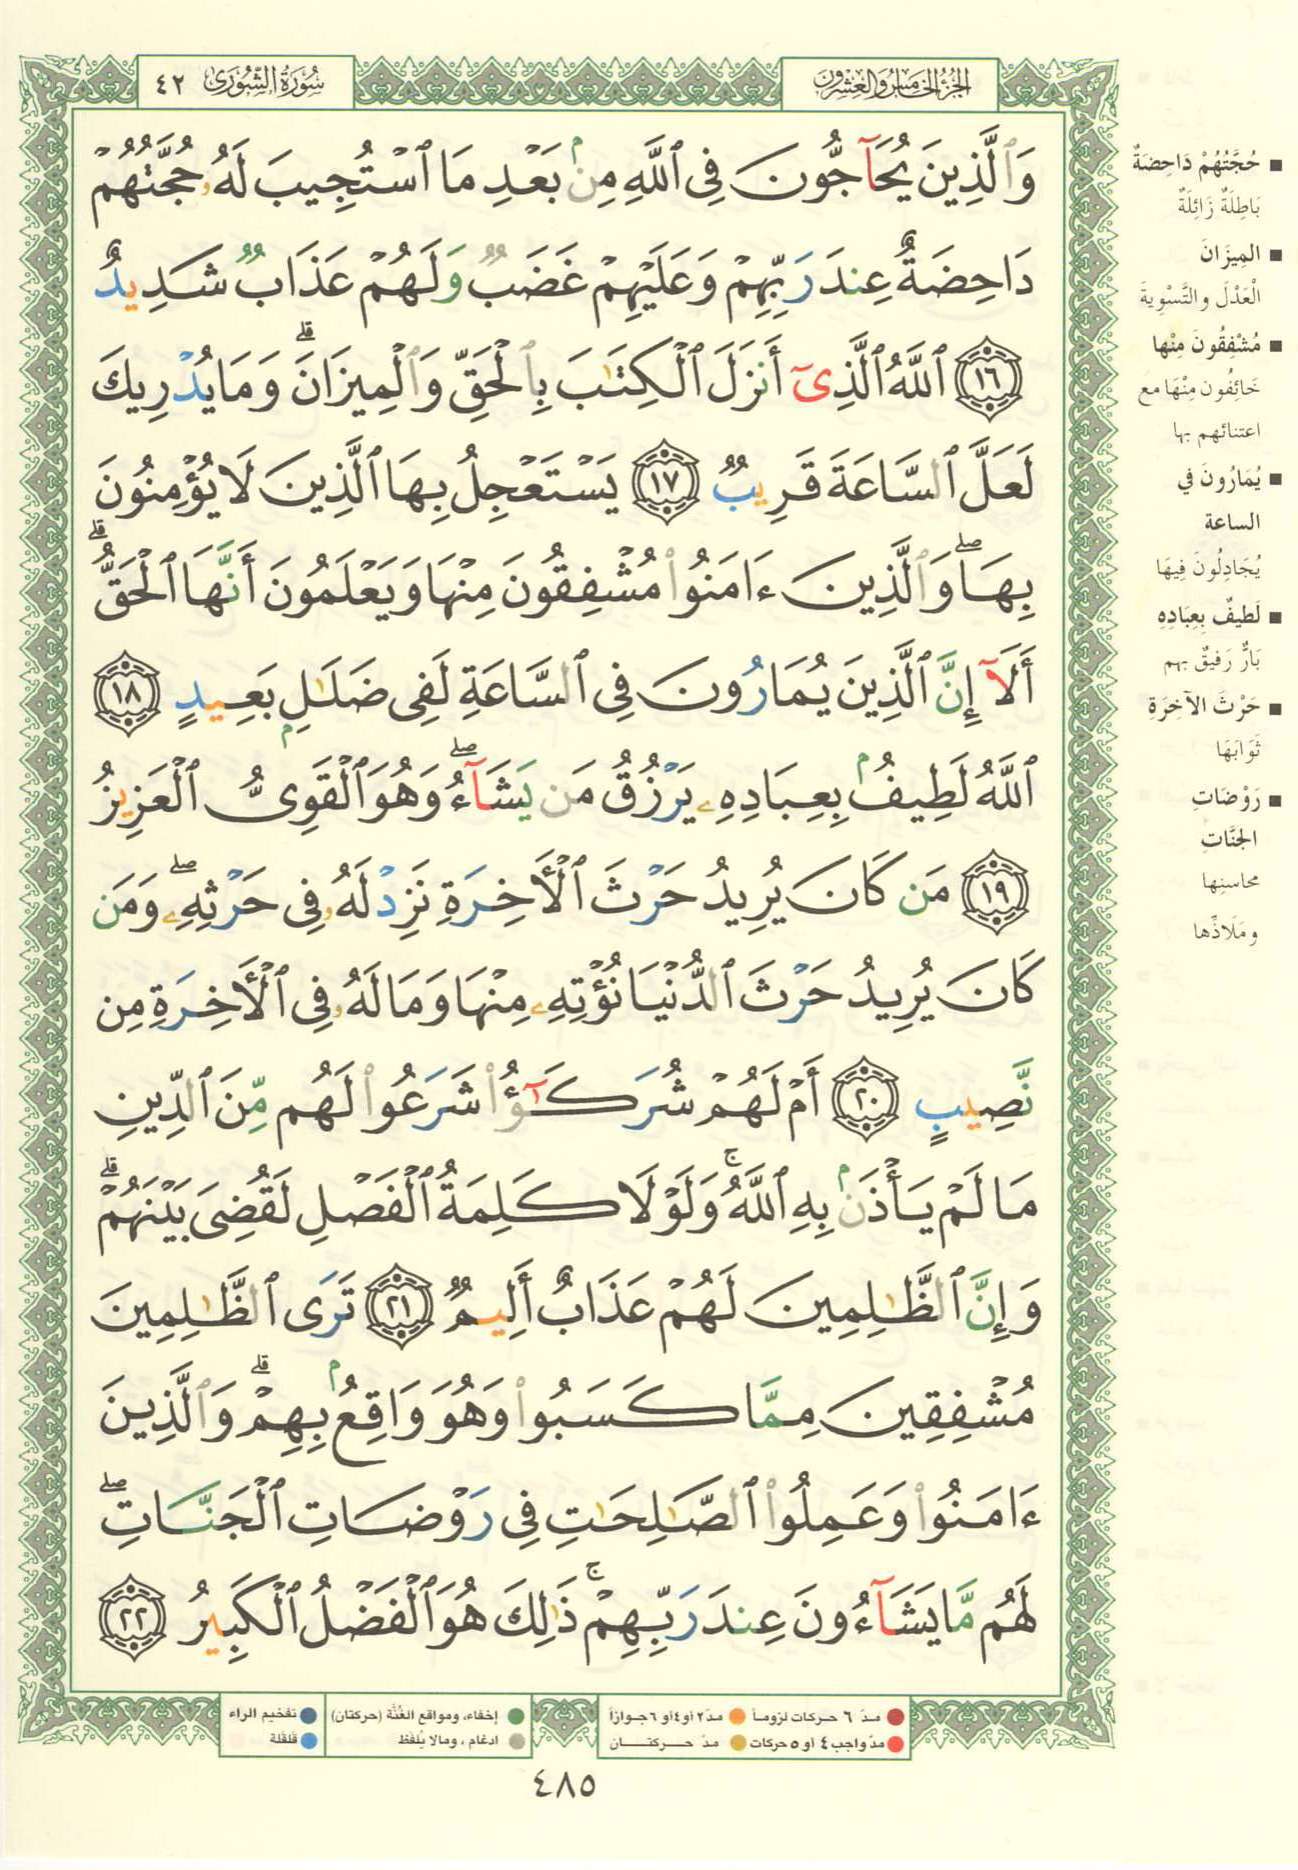 الجزء الخامس والعشرون
سورة الشورى ٤٢
وَٱلَّذِينَ يُحَآجُّونَ فِى ٱللَّهِ مِنۢ بَعْدِ مَا ٱسْتُجِيبَ لَهُۥ حُجَّتُهُمْ
دَاحِضَةٌ عِندَ رَبِّهِمْ وَعَلَيْهِمْ غَضَبٌ وَلَهُمْ عَذَابٌ شَدِيدٌ
١٦ ٱللَّهُ ٱلَّذِىٓ أَنزَلَ ٱلْكِتَٰبَ بِٱلْحَقِّ وَٱلْمِيزَانَ ۗ وَمَا يُدْرِيكَ
لَعَلَّ ٱلسَّاعَةَ قَرِيبٌ ١٧ يَسْتَعْجِلُ بِهَا ٱلَّذِينَ لَا يُؤْمِنُونَ
بِهَا ۖ وَٱلَّذِينَ ءَامَنُوا۟ مُشْفِقُونَ مِنْهَا وَيَعْلَمُونَ أَنَّهَا ٱلْحَقُّ ۗ
أَلَآ إِنَّ ٱلَّذِينَ يُمَارُونَ فِى ٱلسَّاعَةِ لَفِى ضَلَٰلٍۭ بَعِيدٍ ١٨
ٱللَّهُ لَطِيفٌۢ بِعِبَادِهِۦ يَرْزُقُ مَن يَشَآءُ ۖ وَهُوَ ٱلْقَوِىُّ ٱلْعَزِيزُ
١٩ مَن كَانَ يُرِيدُ حَرْثَ ٱلْأَخِرَةِ نَزِدْ لَهُۥ فِى حَرْثِهِۦ ۖ وَمَن
كَانَ يُرِيدُ حَرْثَ ٱلدُّنْيَا نُؤْتِهِۦ مِنْهَا وَمَا لَهُۥ فِى ٱلْأَخِرَةِ مِن
نَّصِيبٍ ٢٠ أَمْ لَهُمْ شُرَكَٰٓؤُا۟ شَرَعُوا۟ لَهُم مِّنَ ٱلدِّينِ
مَا لَمْ يَأْذَنۢ بِهِ ٱللَّهُ ۚ وَلَوْلَا كَلِمَةُ ٱلْفَصْلِ لَقُضِىَ بَيْنَهُمْ ۗ
وَإِنَّ ٱلظَّٰلِمِينَ لَهُمْ عَذَابٌ أَلِيمٌ ٢١ تَرَى ٱلظَّٰلِمِينَ
مُشْفِقِينَ مِمَّا كَسَبُوا۟ وَهُوَ وَاقِعٌۢ بِهِمْ ۗ وَٱلَّذِينَ
ءَامَنُوا۟ وَعَمِلُوا۟ ٱلصَّٰلِحَٰتِ فِى رَوْضَاتِ ٱلْجَنَّاتِ ۖ
لَهُم مَّا يَشَآءُونَ عِندَ رَبِّهِمْ ۚ ذَٰلِكَ هُوَ ٱلْفَضْلُ ٱلْكَبِيرُ ٢٢
■ حُجَّتُهُمْ دَاحِضَةٌ
بَاطِلَةٌ زَائِلَةٌ
■ المِيزَانَ
الْعَدْلَ والتَّسْوِيةَ
■ مُشْفِقُونَ مِنْها
خَائِفُون مِنْهَا مع
اعتنائهم بها
■ يُمَارُونَ في
الساعة
يُجَادِلُونَ فِيهَا
■ لَطيفٌ بِعِبَادِهِ
بَارٌّ رَفيقٌ بهم
■ حَرْثَ الآخِرَةِ
ثَوَابَهَا
■ رَوْضَاتِ
الجَنَّاتِ
محاسنِها
ومَلَاذِّها
مدّ ٦ حركات لزوماً
مدّ ٢ أو ٤ أو ٦ جوازاً
مدّ واجب ٤ أو ٥ حركات
مدّ حركتان
إخفاء، ومواقع الغُنَّة (حركتان)
ادغام، ومالا يُلفَظ
تفخيم الراء
قلقلة
٤٨٥